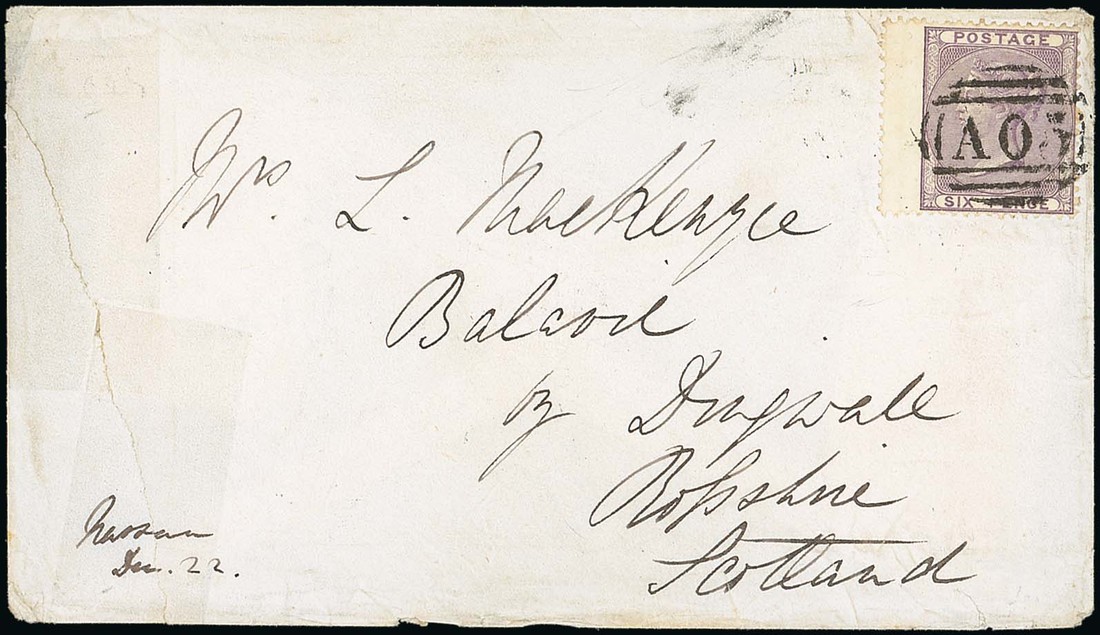 POSTAGE
A05
SIX PENCE
Mrs L. MacKenzie
Balavil
by Dingwall
Rossshire
Scotland
Nassau
Dec. 22.